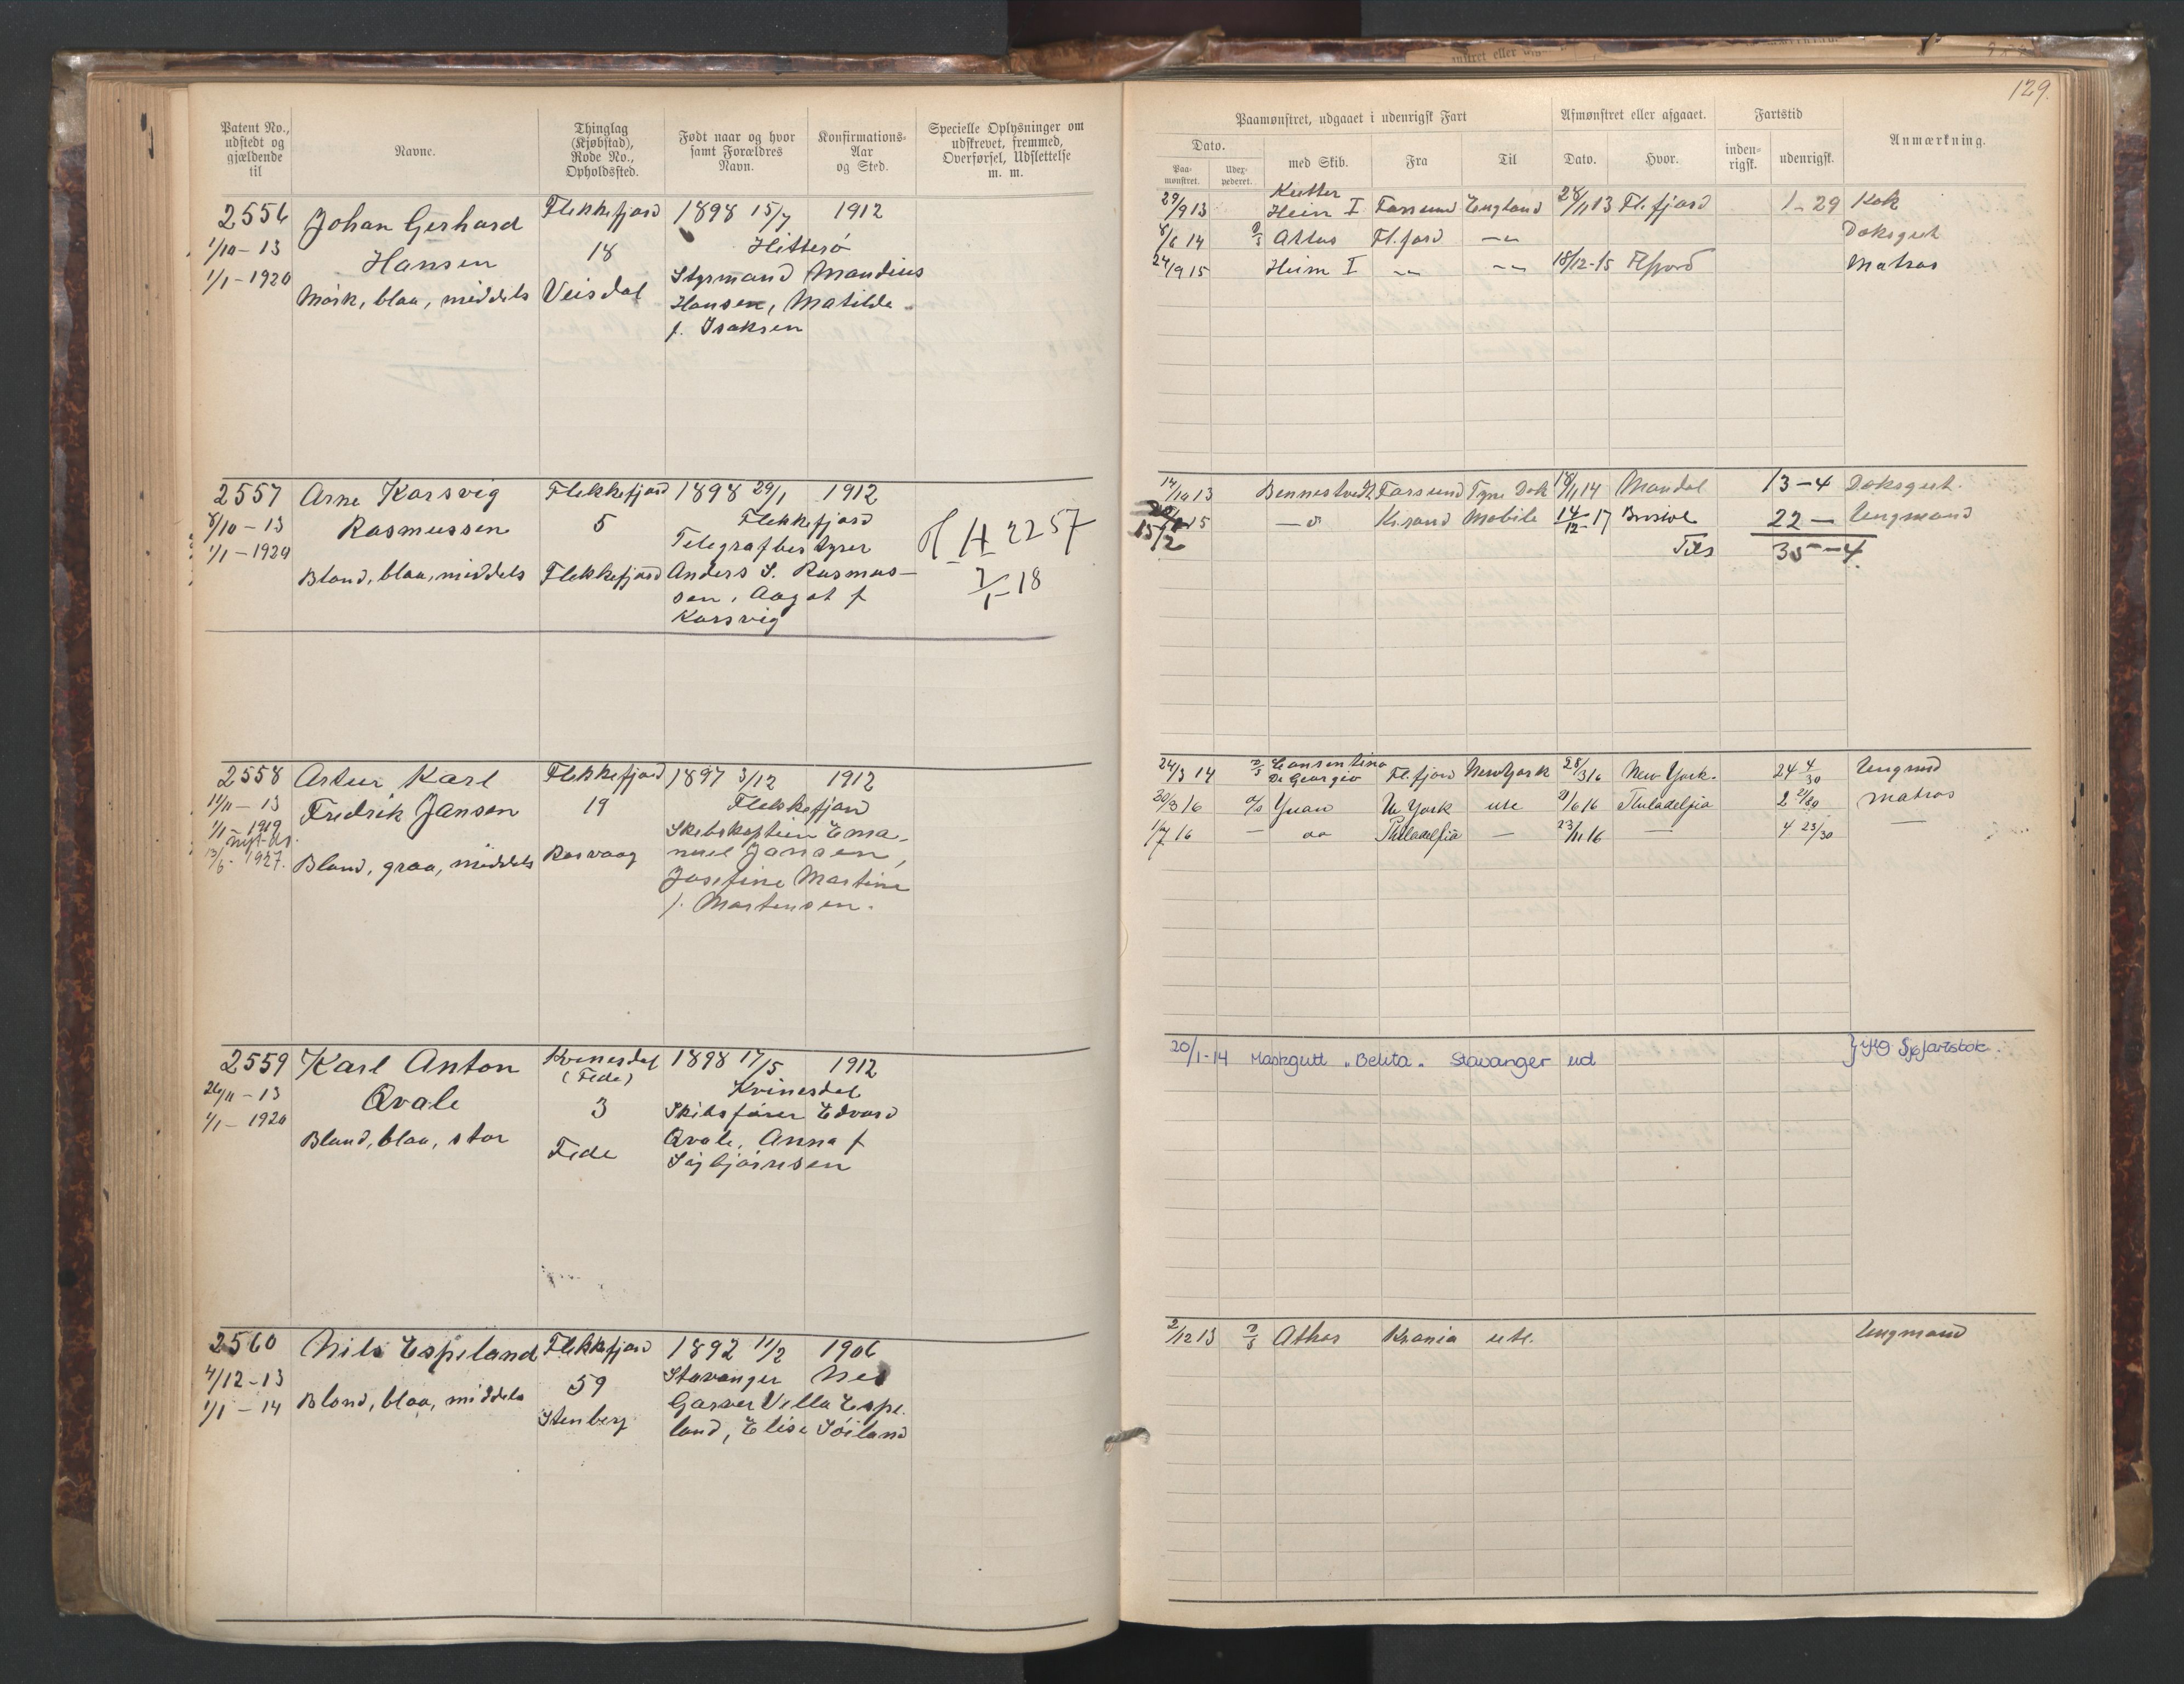 129.
Patent No., udstedt og gjældende til
Navne.
Thinglag (Kjøbstad), Rode No., Opholdssted.
Født naar og hvor samt Forældres Navn.
Konfirmations-Aar og Sted.
Specielle Oplysninger om udskrevet, fremmed, Overførsel, Udslettelse m. m.
Paamønstret, udgaaet i udenrigsk Fart
Afmønstret eller afgaaet.
Fartstid
Anmærkning.
Dato.
Paa-mønstret.
Udex-pederet.
med Skib.
Fra
Til
Dato.
Hvor.
inden-rigsk.
udenrigsk.
2556 Johan Gerhard Flekkefjord 1898 15/7 1912
1/10-13 Hansen 18 Hitterø
1/1-1920 Mørk, blaa, middels Veisdal Styrmand Mandius
Hansen, Matilde
f. Isaksen
29/9 13 Kutter Heim I Farsund England 28/11 13 Fl.fjord 1-29 Kok
8/6 14 D/S Attos Fl.fjord -"- Dæksgut
24/9 15 Heim I -"- -"- 18/12-15 Flfjord Matros
2557 Arne Korsvig Flekkefjord 1898 29/1 1912
8/10-13 Rasmussen 5 Flekkefjord
1/1-1920 Telegrafbestyrer
Blond, blaa, middels Flekkefjord Anders S. Rasmus-
sen, Aagot f
Korsvig
H 2257
2/1-18
14/10 13 Bennestvedt Farsund Tyne Dok 18/1 14 Mandal 13-4 Dæksgut.
15/2 15 -o- Kr.sand Mobile 14/12-17 Bristol 22- Ungmand
Tils 35-4.
2558 Artur Karl Flekkefjord 1897 3/12 1912
11/11-13 Fredrik Jansen 19 Flekkefjord
1/1-1919 Skibskaptein Ema-
nyt-do. nuel Jansen,
13/6-1927. Blond, graa, middels Rasvaag Josefine Martine
f. Martensen.
24/3 14 D/S Consentino De Georgio Fl.fjord New York 28/3 16 New York. 24 4/30 Ungmd
20/3 16 D/S Yuan N. York ute 21/6 16 Philadelfia 2 21/30 Matros
1/7 16 - do Philadelfia - 23/11 16 - 4 23/30 -
2559 Karl Anton Kvinesdal 1898 17/5 1912
(Fede)
26/11-13 Qvale 3 Kvinesdal
1/1-1920 Skibsfører Edvard
Blond, blaa, stor Fede Qvale, Anna f
Sigbjørnsen
20/1-14 Maskgutt "Belita" Stavanger ud } iflg Sjøfartsbok.
2560 Nils Espeland Flekkefjord 1892 11/2 1906
4/12-13 59 Stavanger Nes
1/1-14 Blond, blaa, middels Stenberg Garver Villa Espe-
land, Elise Søiland
2/12 13 D/S Athos Krania ute. Ungmand